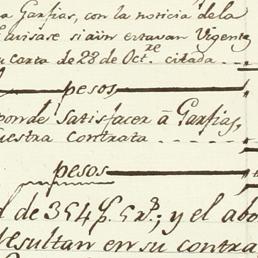 a Garfias, con la noticia dela
avisase si aún estavan Vigente
su carta de 28 de Oct.re citada
pesos
ponde satisfacer à Garfias,
uestra Contrata
pesos
d de 354 p.s 5 r.s; y el abo
resultan en su contra